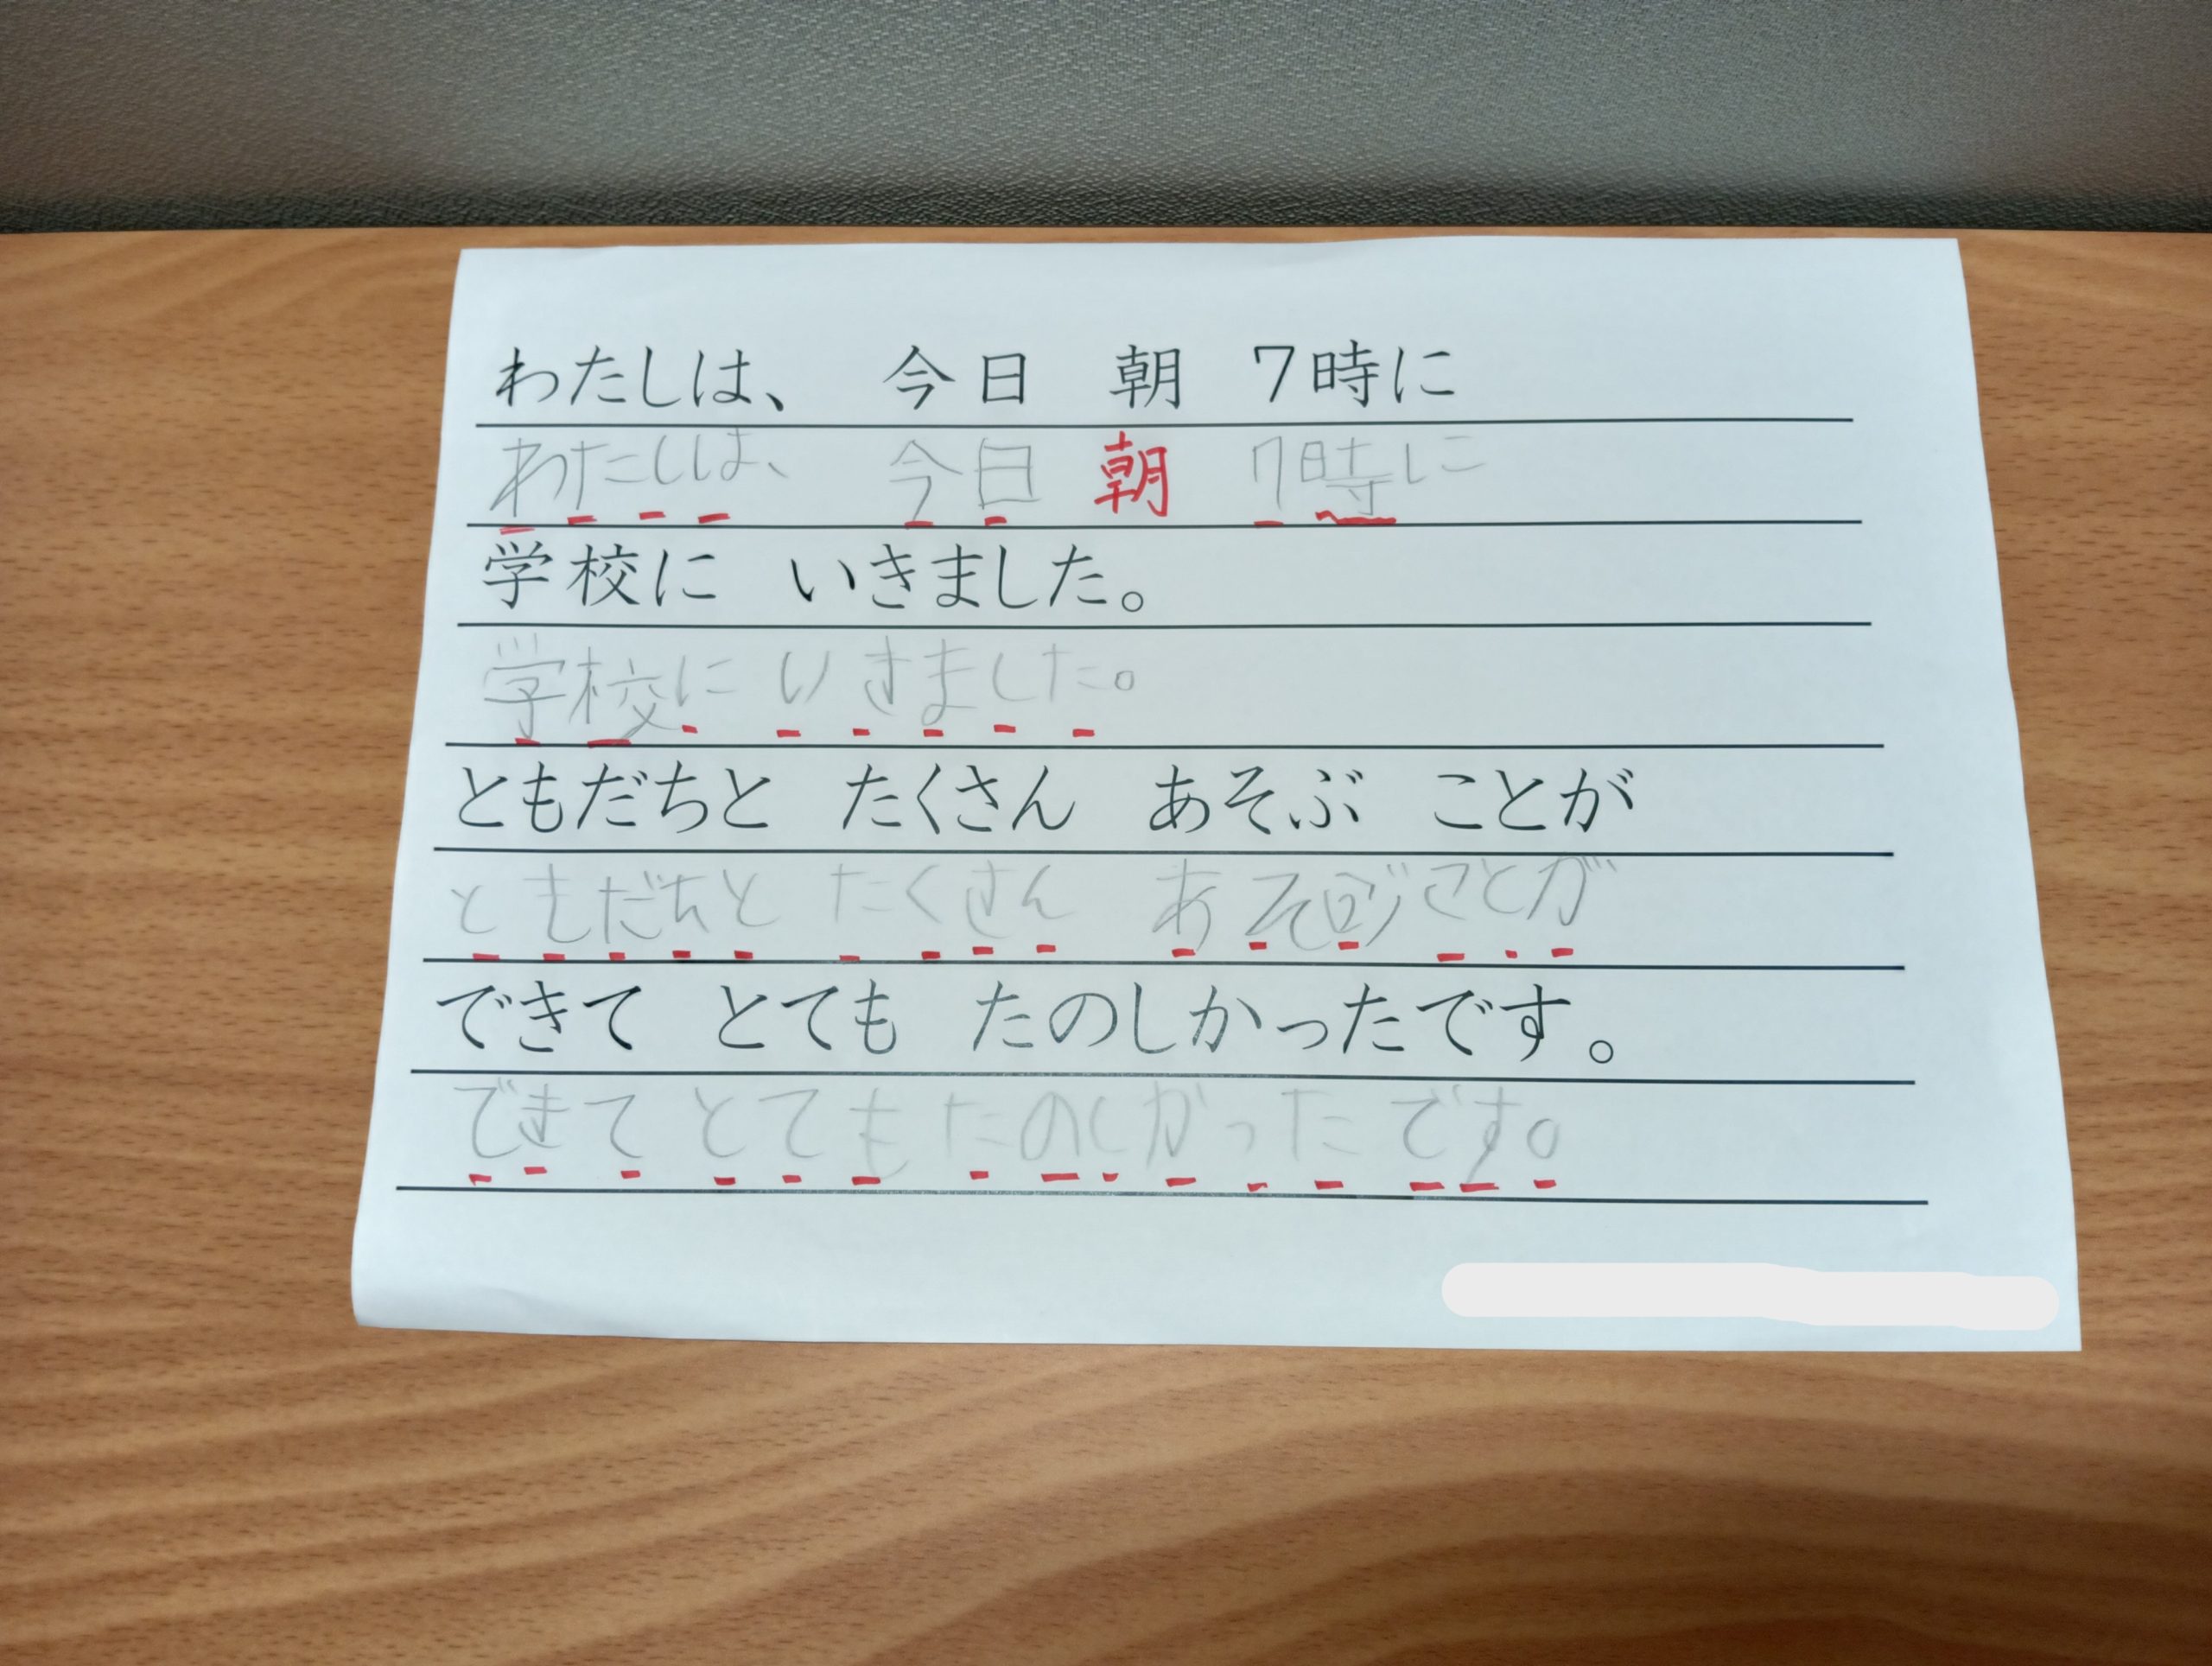 わたしは、 今日 朝 7時に
わたしは、 今日 朝 7時に
学校に いきました。
学校に いきました。
ともだちと たくさん あそぶ ことが
ともだちと たくさん あそ ことが
できて とても たのしかったです。
できて とても たのしがったです。